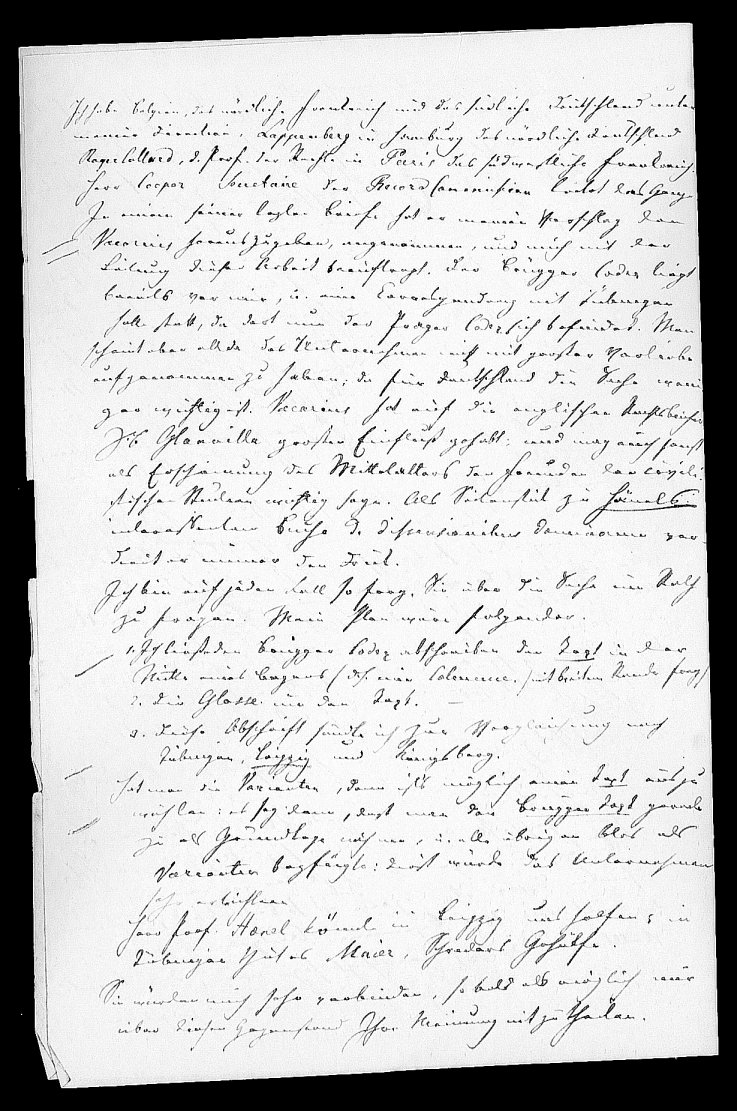 Ich habe Belgien, das nördliche Frankreich und das südliche Deutschland unter
meiner Direction, Lappenberg in Hamburg das nördliche Deutschland
Royer Collard, d. Prof. der Rechte in Paris das südwestliche Frankreich.
Herr Cooper Secretaire der Record Commission leitet das Ganze
In einem seiner letzten Briefe hat er meinen Vorschlag den
Vacarius herauszugeben, angenommen, und mich mit der
Leitung dieser Arbeit beauftragt. Der Brügger Codex liegt
bereits vor mir, u. eine Correspondenz mit Tübingen
hatte statt, da dort nun der Prager Codex sich befindet. Man
scheint aber allda das Unternehmen nicht mit großer Vorliebe
aufgenommen zu haben; da für Deutschland die Sache weni
ger wichtig ist. Vacarius hat auf die englischen Rechtsbücher
Glanvilla großen Einfluß gehabt; und mag auch sonst
als Erscheinung des Mittelalters den Freunden der civili
stischen Studien wichtig seyn. Als Seitenstück zu Hänels
interessantem Buche de dissensionibus dominorum ver-
dient er immer den Druck.
Ich bin auf jeden Fall so frey, Sie über die Sache um Rath
zu fragen. Mein Plan wäre folgender.
1. Ich ließe den Brügger Codex abschreiben den Text in der
Mitte eines Bogens (auf eine Columne, mit breitem Rande
2. Die Glosse um den Text. —
3. Diese Abschrift sende ich zur Vergleichung nach
Tübingen, Leipzig und Königsberg.
Hat man die Varianten, dann ist's möglich einen Text auszu
wählen: es sey denn, daß man den Brügger Text gerade
zu als Grundlage nähme, u. alle übrigen blos als
Varianten beyfügte: dieß würde das Unternehmen
sehr erleichtern
Herr Prof. Haenel könnte in Leipzig uns helfen; in
Tübingen thut es Maier, Schraders Gehülfe.
Sie würden mich sehr verbinden, so bald als möglich mir
über diesen Gegenstand Ihre Meinung mitzutheilen.